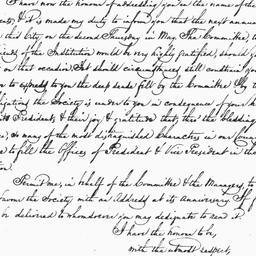 I have now the honour of addressing you in the name of the
& it is made my duty to inform you that the next annu
this city on the second Thursday in May. The Committee, to
ends of the Institution would be very highly gratified, should y
on that occasion. But should circumstances still confine y
to express to you the deep sense felt by the Committee
the Society is under to you in consequence of your
President; & their joy, & gratitude that, the
as many of the most distinguished characters in our Coun
to fill the Offices of President & Vice President in th
tion.
Permit me, in behalf of the Committee & the Managers, to
favour the Society with an Address at its anniversary. If
be delivered to whomsoever you may designate to read it.
I have the honour to be,
with the utmost respect,